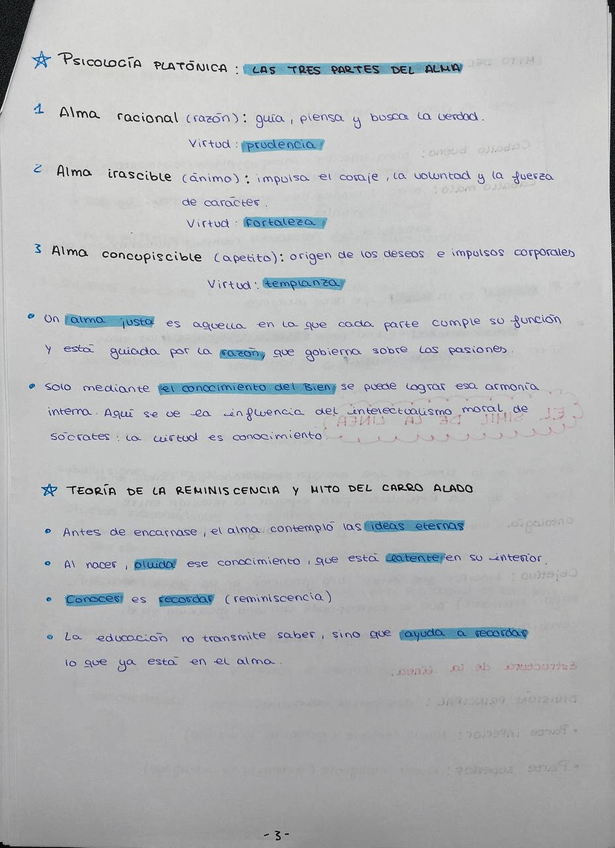 ☆ PSICOLOGÍA PLATÓNICA: LAS TRES PARTES DEL ALMA
1 Alma racional (razón): guía, piensa y busca la verdad.
Virtud: prudencia
2 Alma irascible (ánimo): impulsa el coraje, la voluntad y la fuerza
de carácter.
Virtud: fortaleza
3 Alma concupiscible (apetito): origen de los deseos e impulsos corporales
Virtud: templanza
• Un alma justa es aquella en la que cada parte cumple su función
y está guiada por la razón, que gobierna sobre las pasiones.
• Solo mediante el conocimiento del Bien, se puede lograr esa armonía
interna. Aquí se ve la influencia del intelectualismo moral de
Sócrates: la virtud es conocimiento.
☆ TEORÍA DE LA REMINISCENCIA Y MITO DEL CARRO ALADO
• Antes de encarnase, el alma contempló las ideas eternas
• Al nacer, olvida ese conocimiento, que está latente en su interior.
• Conocer es recordar (reminiscencia)
• La educación no transmite saber, sino que ayuda a recordar
lo que ya está en el alma.
-3-